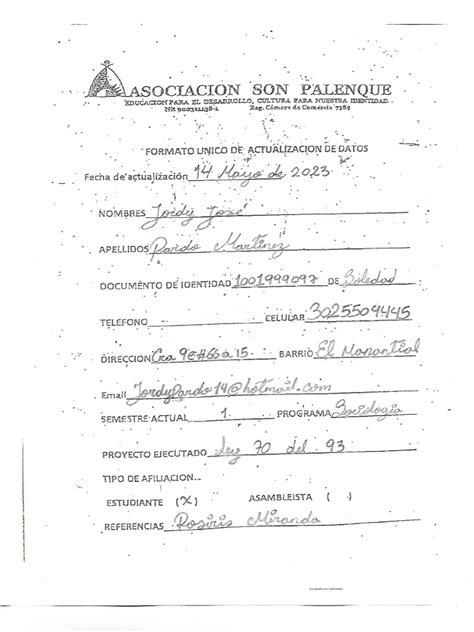 ASOCIACION SON PALENQUE
EDUCACION PARA EL DESARROLLO, CULTURA PARA NUESTRA IDENTIDAD.
Nit 900321138-1 Reg. Cámara de Comercio 7389
FORMATO UNICO DE ACTUALIZACION DE DATOS
Fecha de actualización 14 Mayo de 2023
NOMBRES Jordy José
APELLIDOS Pardo Martinez
DOCUMENTO DE IDENTIDAD 1001999097 DE Soledad
TELEFONO CELULAR 3025509445
DIRECCION Cra 9e#66a15 BARRIO El Manantial
Email JordyPardo14@hotmail.com
SEMESTRE ACTUAL 1 PROGRAMA Sociologia
PROYECTO EJECUTADO ley 70 del 93
TIPO DE AFILIACION
ESTUDIANTE (X) ASAMBLEISTA ( )
REFERENCIAS Rosiris Miranda